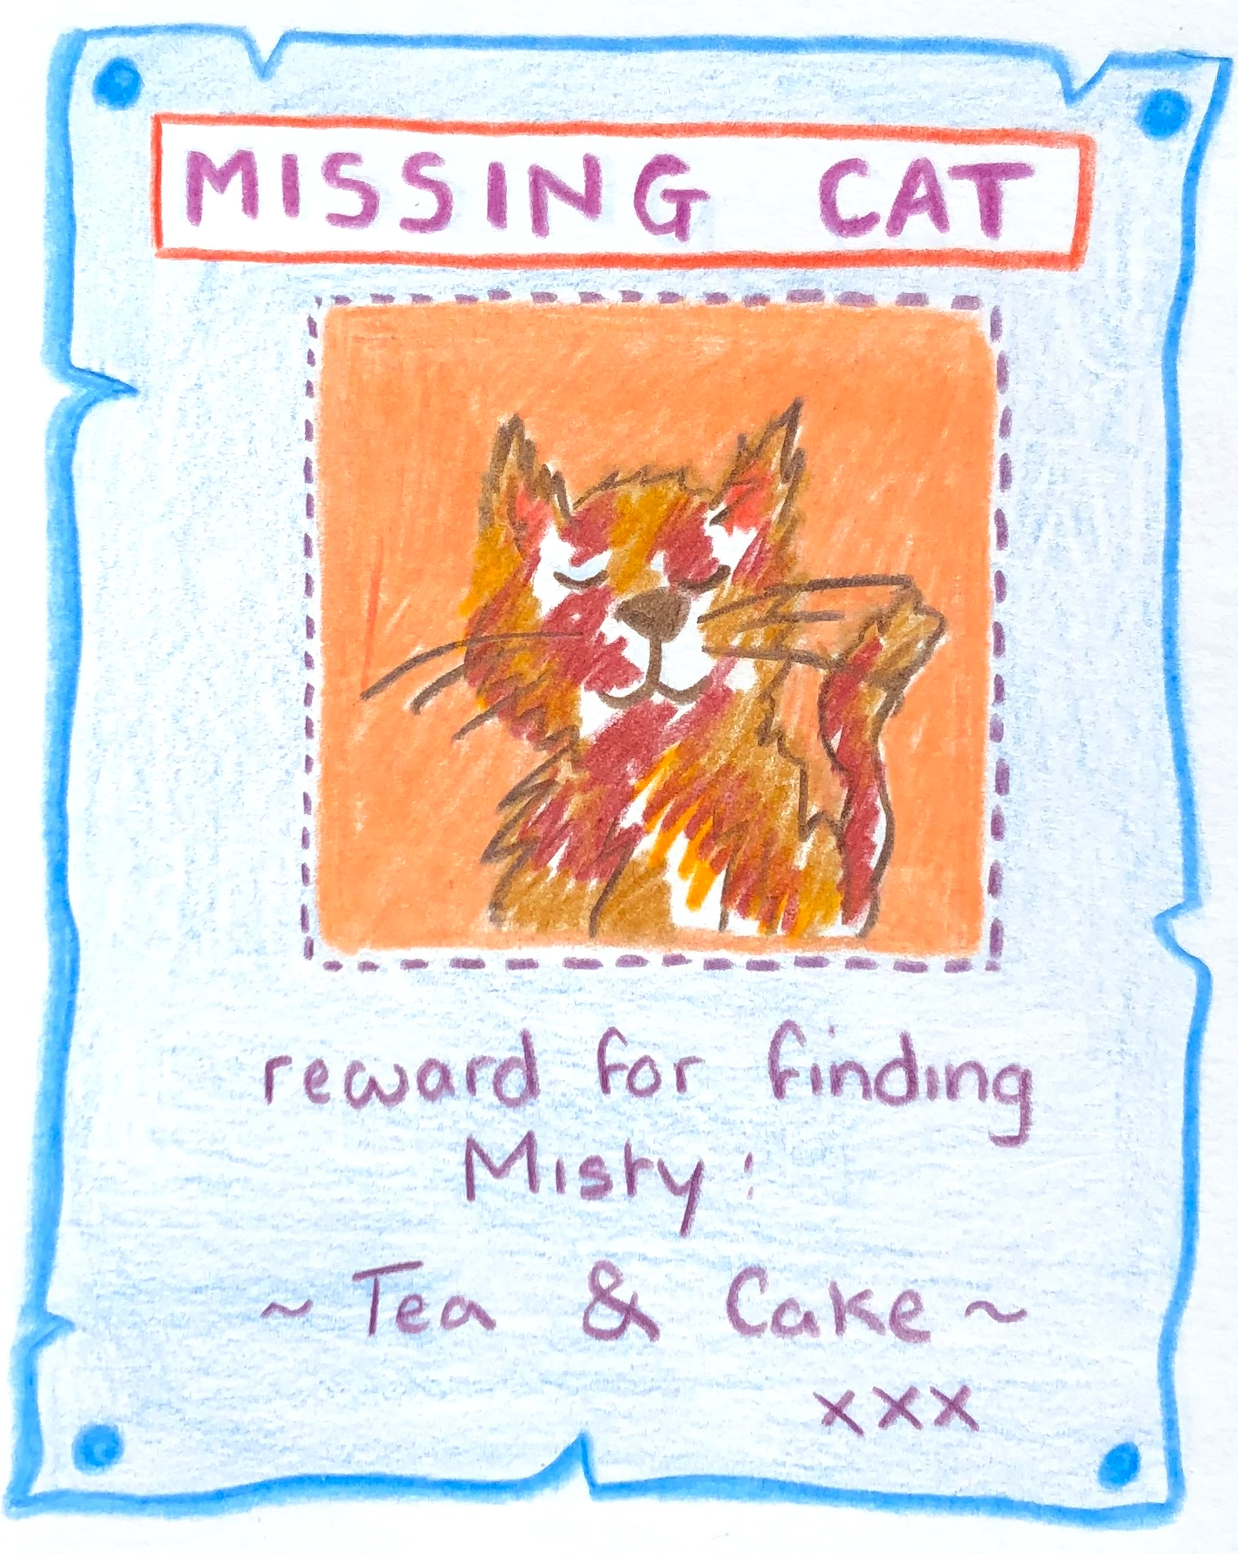 MISSING CAT
reward for finding
Misty:
~ Tea & Cake ~
xxx